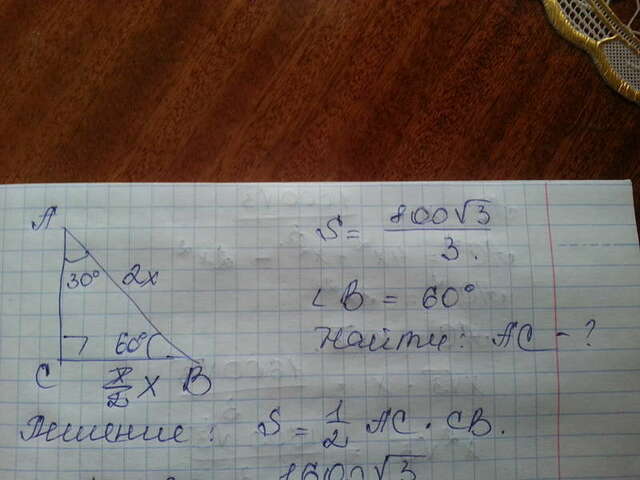 A
30°
2x
60°
C
x/2 x
B
S = 800√3/3.
∠B = 60°
Найти: AC - ?
Решение: S = 1/2 AC · CB.
1600√3